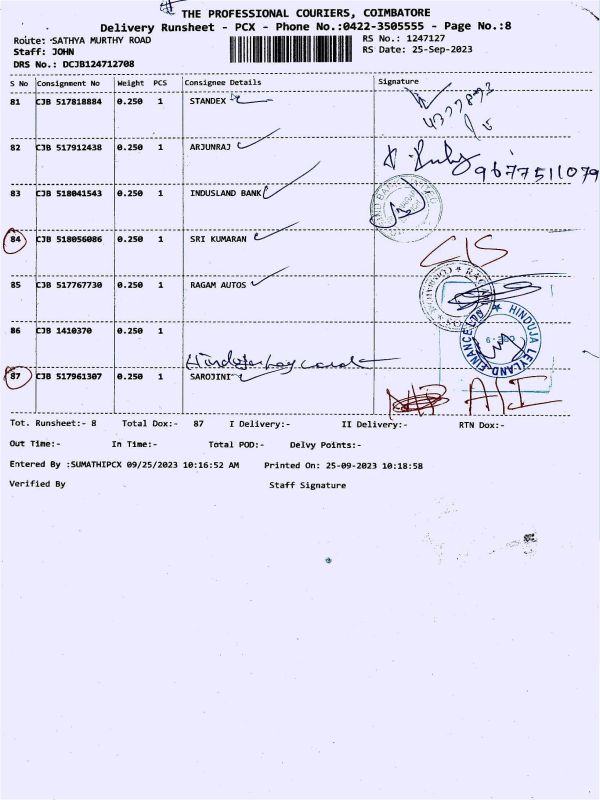 THE PROFESSIONAL COURIERS, COIMBATORE
Delivery Runsheet - PCX - Phone No.:0422-3505555 - Page No.:8
Route: SATHYA MURTHY ROAD RS No.: 1247127
Staff: JOHN RS Date: 25-Sep-2023
DRS No.: DCJB124712708
S No Consignment No Weight PCS Consignee Details Signature
81 CJB 517818884 0.250 1 STANDEX
82 CJB 517912438 0.250 1 ARJUNRAJ
9677511079
83 CJB 518041543 0.250 1 INDUSLAND BANK
84 CJB 518056086 0.250 1 SRI KUMARAN
C/S
85 CJB 517767730 0.250 1 RAGAM AUTOS
86 CJB 1410370 0.250 1
HINDUJA LEYLAND FINANCE LTD
87 CJB 517961307 0.250 1 SAROJINI
A/I
Tot. Runsheet:- 8 Total Dox:- 87 I Delivery:- II Delivery:- RTN Dox:-
Out Time:- In Time:- Total POD:- Delvy Points:-
Entered By :SUMATHIPCX 09/25/2023 10:16:52 AM Printed On: 25-09-2023 10:18:58
Verified By Staff Signature